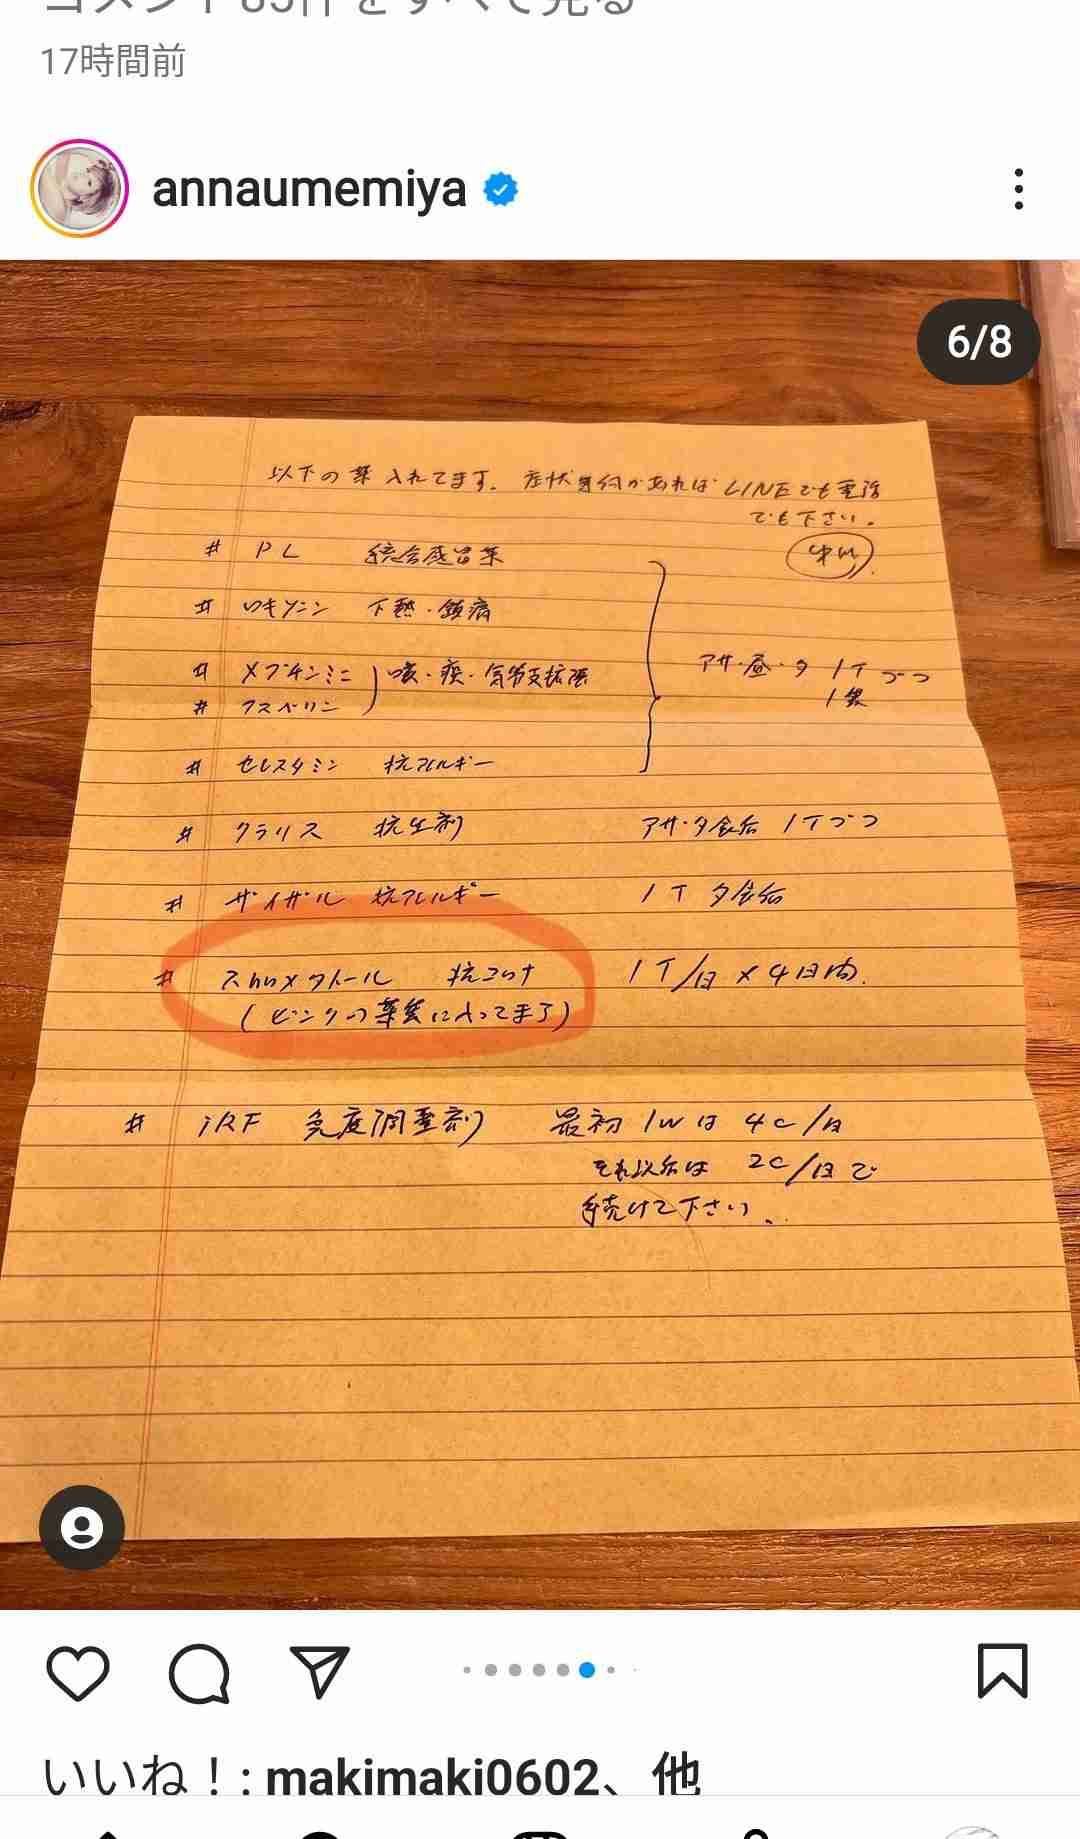 コメント85件をすべて見る
17時間前
annaumemiya
6/8
以下の薬入れてます。症状変化があればLINEでも電話
でも下さい。
# PL 総合感冒薬
# ロキソニン 下熱・鎮痛
# メプチンミニ 咳・痰・気管支拡張
# アスベリン
# セレスタミン 抗アレルギー
アサ・昼・夕 1T づつ
1袋
# クラリス 抗生剤 アサ・夕食后 1Tづつ
# ザイザル 抗アレルギー 1T 夕食后
# ストロメクトール 抗コロナ 1T/日×4日間.
(ピンクの薬袋に入ってます)
# iRF 免疫調整剤 最初 1Wは 4C/日
それ以后は 2C/日で
続けて下さい、
いいね！: makimaki0602、他